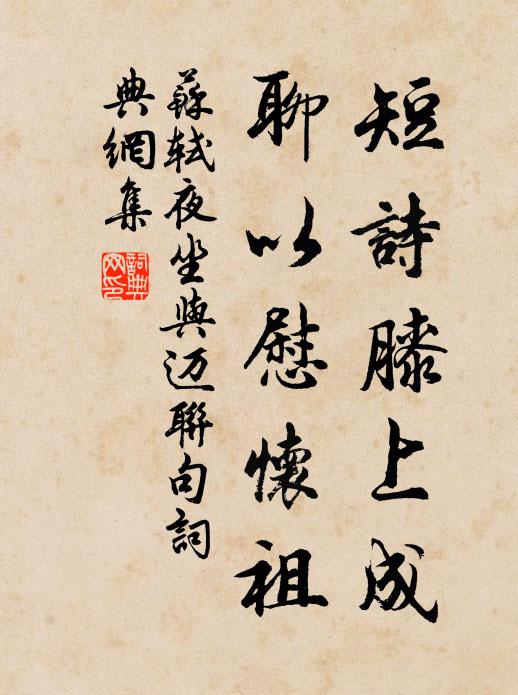 短詩膝上成
聊以慰懷祖
蘇軾夜坐與迈聯句詞
典網集
詞典
网印